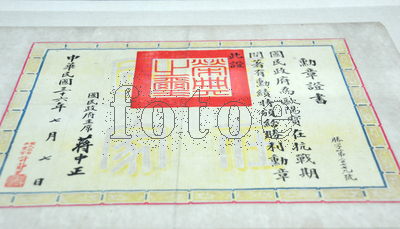 勳章證書
國民政府為歐陽寶在抗戰期
間著有勳績特頒給勝利勳章
此證
榮典之璽
國民政府主席 蔣中正
中華民國三十六年 七月 七日
foto